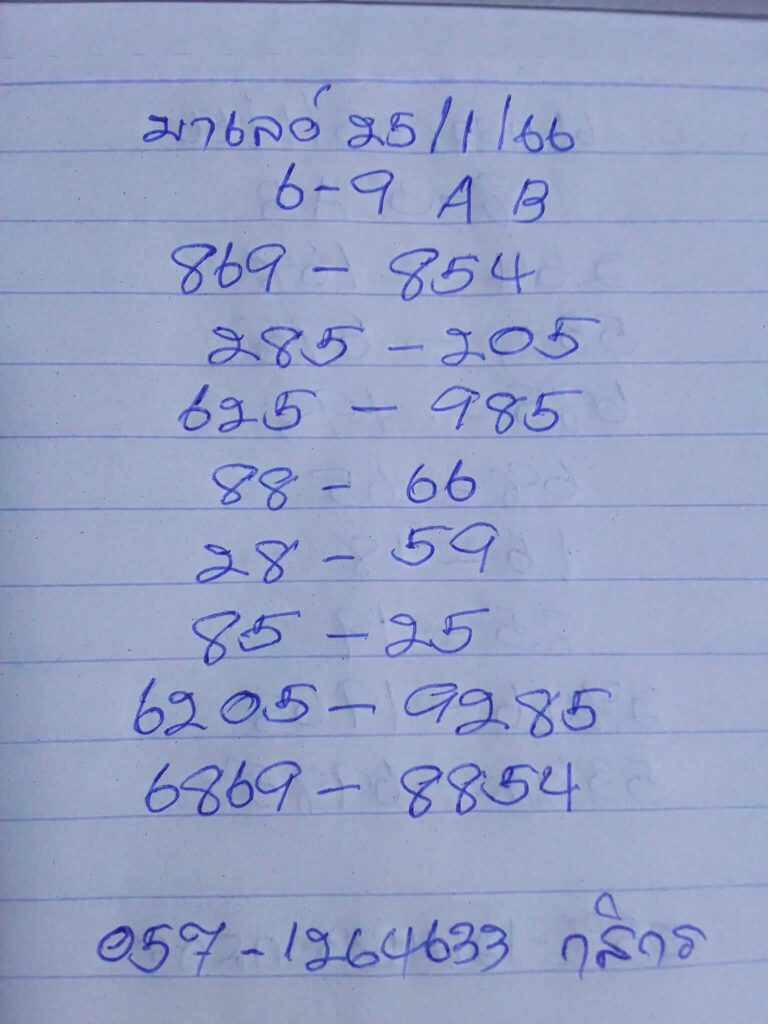 มาเลย์ 25/1/66
6-9 A B
869 - 854
285 - 205
625 - 985
88 - 66
28 - 59
85 - 25
6205 - 9285
6869 - 8854
057-1264633